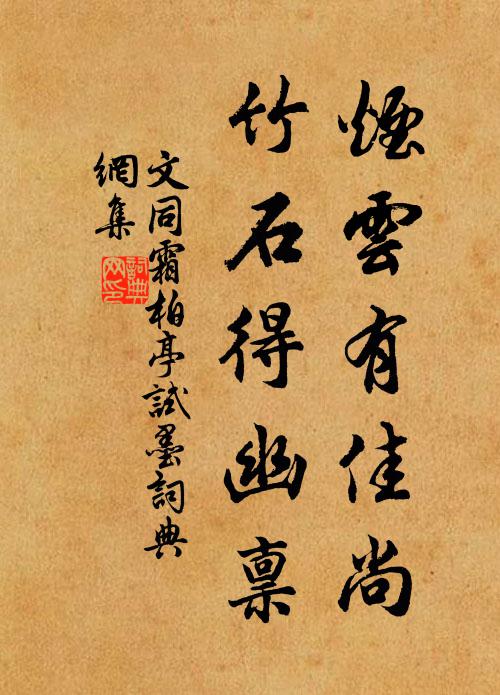 煙雲有佳尚
竹石得幽稟
文同霜柏亭試墨詞典
網集
詞典
网印